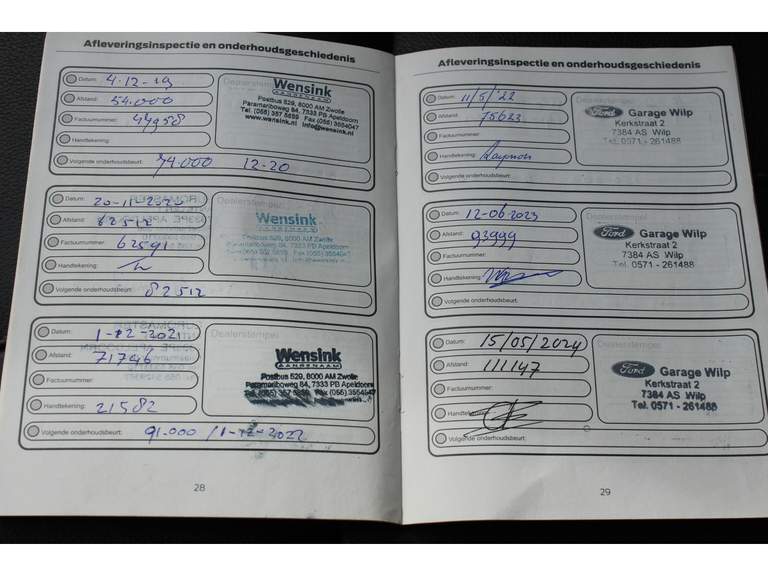 Afleveringsinspectie en onderhoudsgeschiedenis
Datum: 4-12-19
Afstand: 54.000
Factuurnummer: 44958
Handtekening:
Volgende onderhoudsbeurt: 74.000 12-20
Dealerstempel
Wensink
AANRENAAM
Postbus 529, 8000 AM Zwolle
Paramariboweg 84, 7333 PB Apeldoorn
Tel. (055) 357 5699 Fax (055) 3554047
www.wensink.nl info@wensink.nl
Datum: 20-11-2020
Afstand: 62512
Factuurnummer: 62591
Handtekening:
Volgende onderhoudsbeurt: 82512
Dealerstempel
Wensink
Postbus 529, 8000 AM Zwolle
Paramariboweg 84, 7333 PB Apeldoorn
Datum: 1-12-2021
Afstand: 71746
Factuurnummer:
Handtekening: 21582
Volgende onderhoudsbeurt: 91.000 / 1-12-2022
Dealerstempel
Wensink
AANRENAAM
Postbus 529, 8000 AM Zwolle
Paramariboweg 84, 7333 PB Apeldoorn
28
Afleveringsinspectie en onderhoudsgeschiedenis
Datum: 11/5/'22
Afstand: 75623
Factuurnummer:
Handtekening:
Volgende onderhoudsbeurt:
Ford Garage Wilp
Kerkstraat 2
7384 AS Wilp
Tel. 0571 - 261488
Datum: 12-06-2023
Afstand: 93999
Factuurnummer:
Handtekening:
Volgende onderhoudsbeurt:
Dealerstempel
Ford Garage Wilp
Kerkstraat 2
7384 AS Wilp
Tel. 0571 - 261488
Datum: 15/05/2024
Afstand: 111147
Factuurnummer:
Handtekening:
Volgende onderhoudsbeurt:
Dealerstempel
Ford Garage Wilp
Kerkstraat 2
7384 AS Wilp
Tel. 0571 - 261488
29